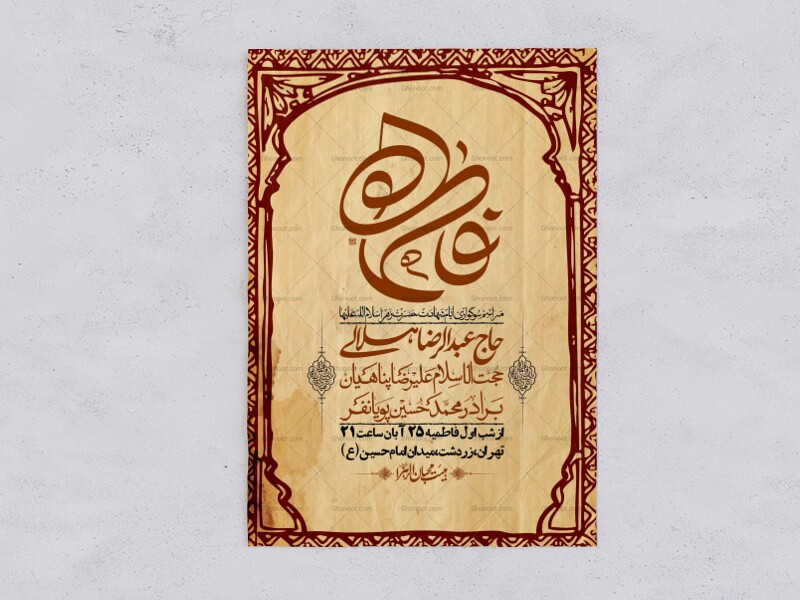 فاطمه
مراسم سوگواری ایام شهادت حضرت زهرا سلام الله علیها
حاج عبدالرضا هلالی
حجت الاسلام علیرضا پناهیان
برادر محمد حسین پویانفر
از شب اول فاطمیه ۲۵ آبان ساعت ۲۱
تهران، زردشت، میدان امام حسین (ع)
هیئت محبان الزهرا
Ghonoot.com